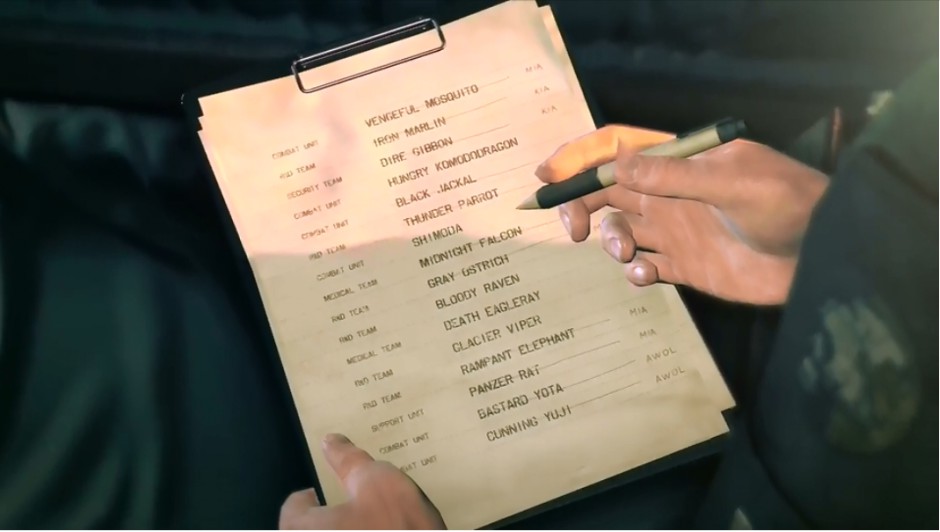 COMBAT UNIT VENGEFUL MOSQUITO MIA
RND TEAM IRON MARLIN KIA
SECURITY TEAM DIRE GIBBON KIA
COMBAT UNIT HUNGRY KOMODODRAGON
COMBAT UNIT BLACK JACKAL
RND TEAM THUNDER PARROT
COMBAT UNIT SHIMODA
MEDICAL TEAM MIDNIGHT FALCON
RND TEAM GRAY OSTRICH
RND TEAM BLOODY RAVEN
MEDICAL TEAM DEATH EAGLERAY
RND TEAM GLACIER VIPER
RND TEAM RAMPANT ELEPHANT MIA
SUPPORT UNIT PANZER RAT MIA
COMBAT UNIT BASTARD YOTA AWOL
BAT UNIT CUNNING YUJI AWOL